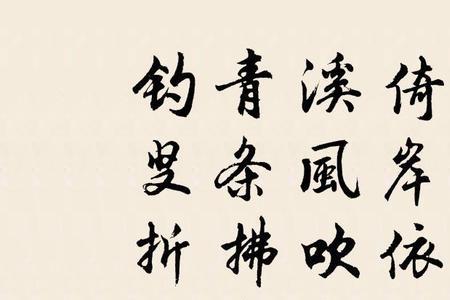 倚岸依
溪風吹
青条拂
钓叟折